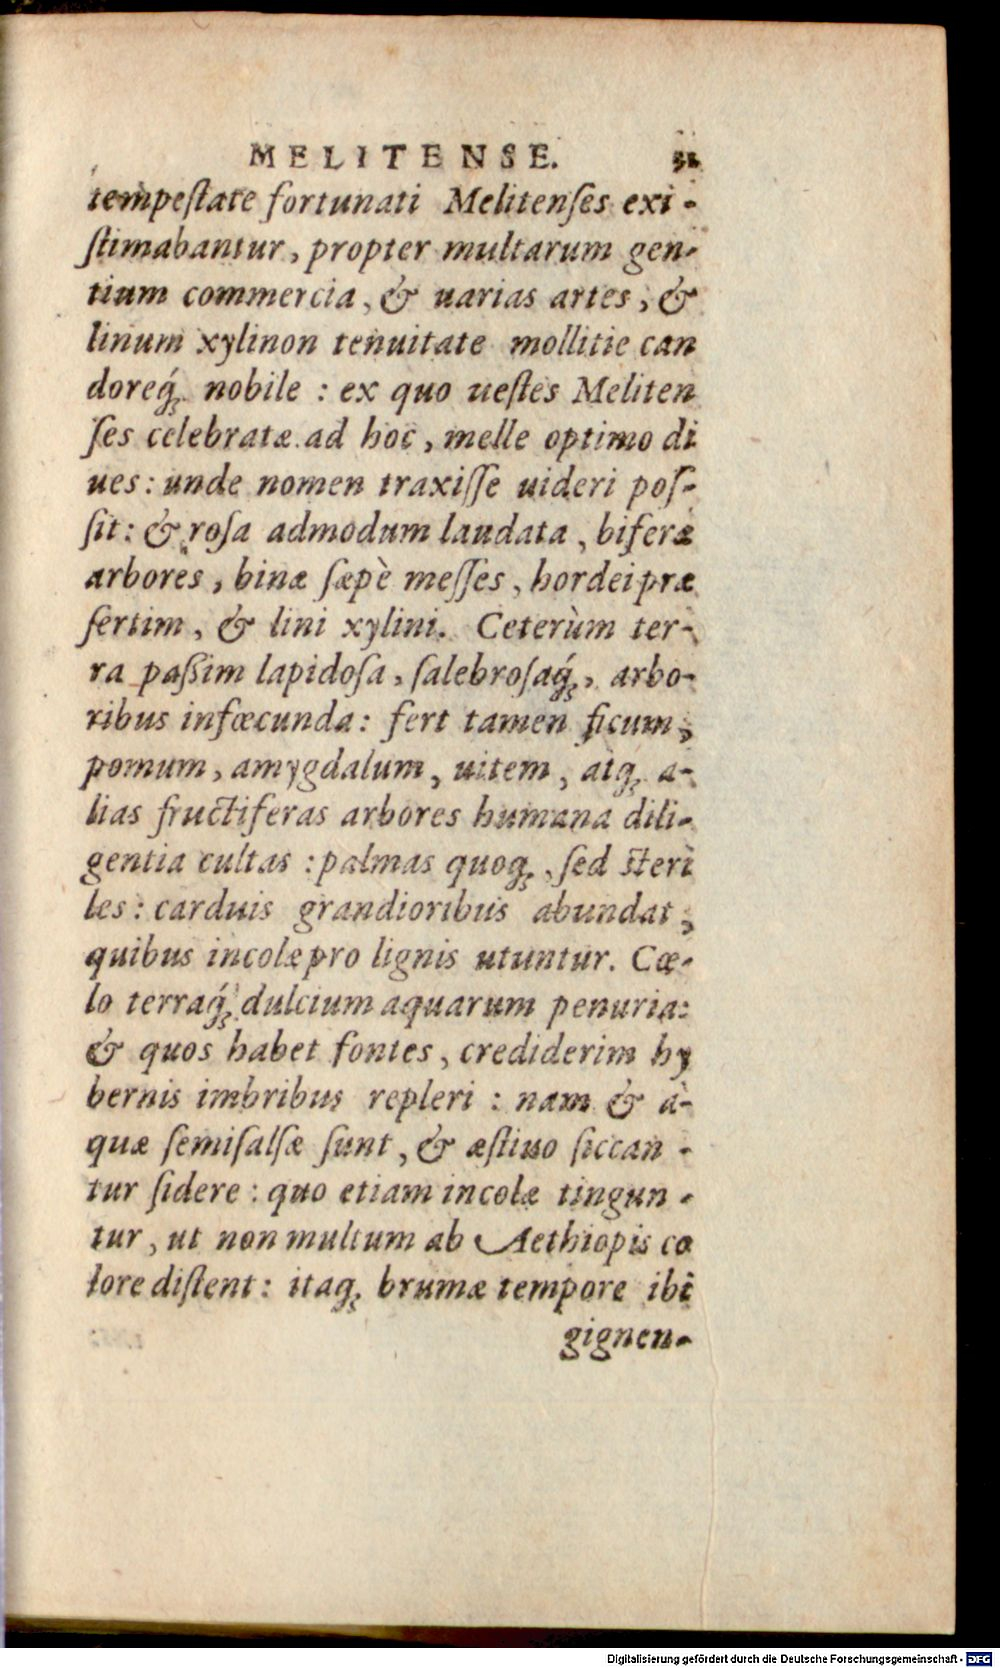 MELITENSE. 31
tempeſtate fortunati Melitenſes exi-
ſtimabantur, propter multarum gen-
tium commercia, & uarias artes, &
linum xylinon tenuitate mollitie can
doreq́; nobile : ex quo ueſtes Meliten
ſes celebratæ. ad hoc, melle optimo di
ues: unde nomen traxiſſe uideri poſ-
ſit: & roſa admodum laudata, biferæ
arbores, binæ ſæpè meſſes, hordei præ
ſertim, & lini xylini. Ceterùm ter-
ra paßim lapidoſa, ſalebroſaq́;, arbo-
ribus infœcunda: fert tamen ficum,
pomum, amygdalum, uitem, atq; a-
lias fructiferas arbores humana dili-
gentia cultas : palmas quoq;, ſed ſteri
les: carduis grandioribus abundat,
quibus incolæ pro lignis utuntur. Cœ-
lo terraq́; dulcium aquarum penuria:
& quos habet fontes, crediderim hy
bernis imbribus repleri : nam & à-
quæ ſemiſalſæ ſunt, & æſtiuo ſiccan-
tur ſidere: quo etiam incolæ tingun-
tur, ut non multum ab Aethiopis co
lore diſtent: itaq; brumæ tempore ibi
gignen-
Digitalisierung gefördert durch die Deutsche Forschungsgemeinschaft - DFG